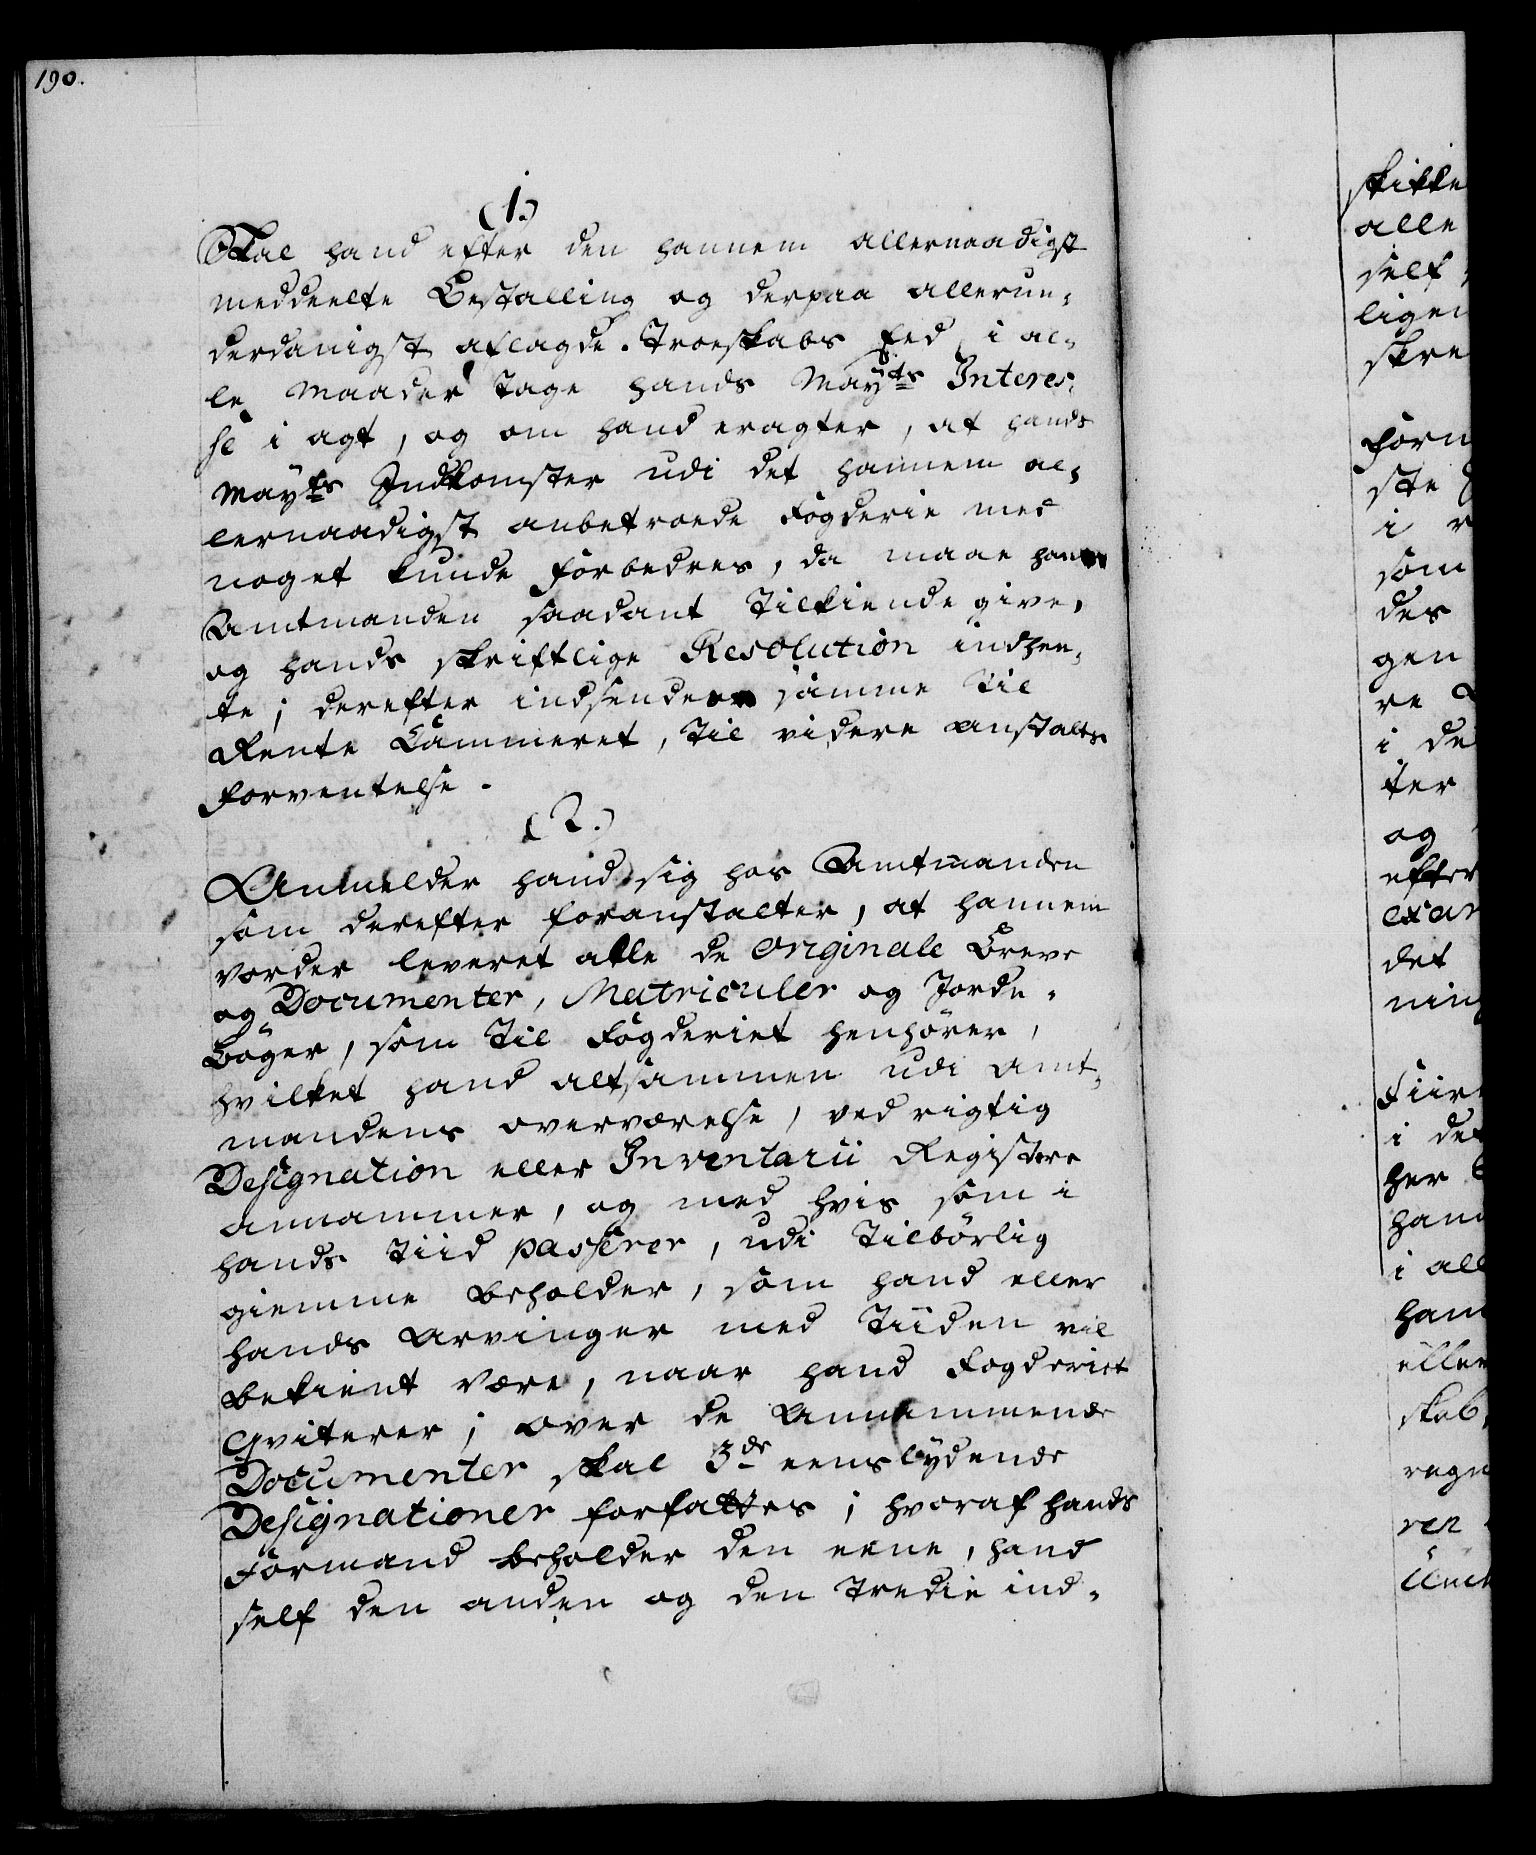 190.
(1.)
Skal hand efter den hannem allernaadigst
meddeelte Bestalling og derpaa allerun-
derdanigst aflagde Troeskabs Eed, i al-
le maader tage hands Mayts Interes-
se i agt, og om hand eragter, at hands
Mayts Indkomster udi det hannem al-
lernaadigst anbetroede Fogderie med
noget kunde forbedres, da maae hand
Amtmanden saadant tilkiende give,
og hands skriftlige Resolution indhen-
te; derefter indsender samme til
Rente Cammeret, til videre anstalts
forventelse.
(2.)
Anmelder hand sig hos Amtmanden
som derefter foranstalter, at hannem
vorder leveret alle de originale Breve
og Documenter, Matriculer og Jorde-
Bøger, som til Fogderiet henhører,
hvilket hand altsammen udi Amt-
mandens overværelse, ved rigtig
Designation eller Inventarii Registere
annammer, og med hvis som i
hands tiid passerer, udi tilbørlig
giemme beholder, som hand eller
hands Arvinger med tiiden vil
bekient være, naar hand Fogderiet
qviterer; over de Annammende
Documenter skal 3de eenslydende
Designationer forfattes; hvoraf hands
Formand beholder den eene, hand
self den anden og den tredie ind-
skikke
alle
self
ligen
skre
forn
ste
i
som
des
gen
re
i de
ter
og
efter
exar
det
ning
Fiir
i det
her
hans
i all
ham
eller
skab
regn
ver